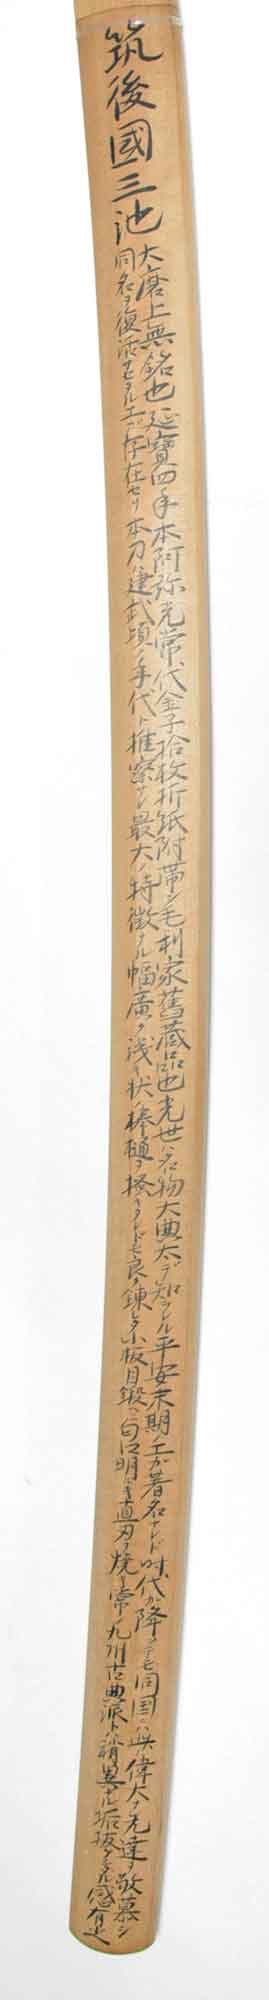 筑後國三池
大磨上無銘也延寶四年本阿弥光常代金子拾枚折紙附帯シ毛利家舊蔵品也光世ハ名物大典太デ知ラレル平安末期ノ工ガ著名ナレド時代ガ降ヲテモ同国ニハ此ノ偉大ナ先達ヲ敬慕シ
同名ヲ復活サセタル工ガ存在セリ本刀ハ建武頃ノ年代ト推察サレ最大ノ特徴ナル幅廣ク浅キ状ノ棒樋ヲ掻キタレドモ良ク錬レタ小板目鍛ヘニ匂口明ルキ直刃ヲ焼キ常ノ九州古典派トハ稍異ナル垢抜ケタル感有之